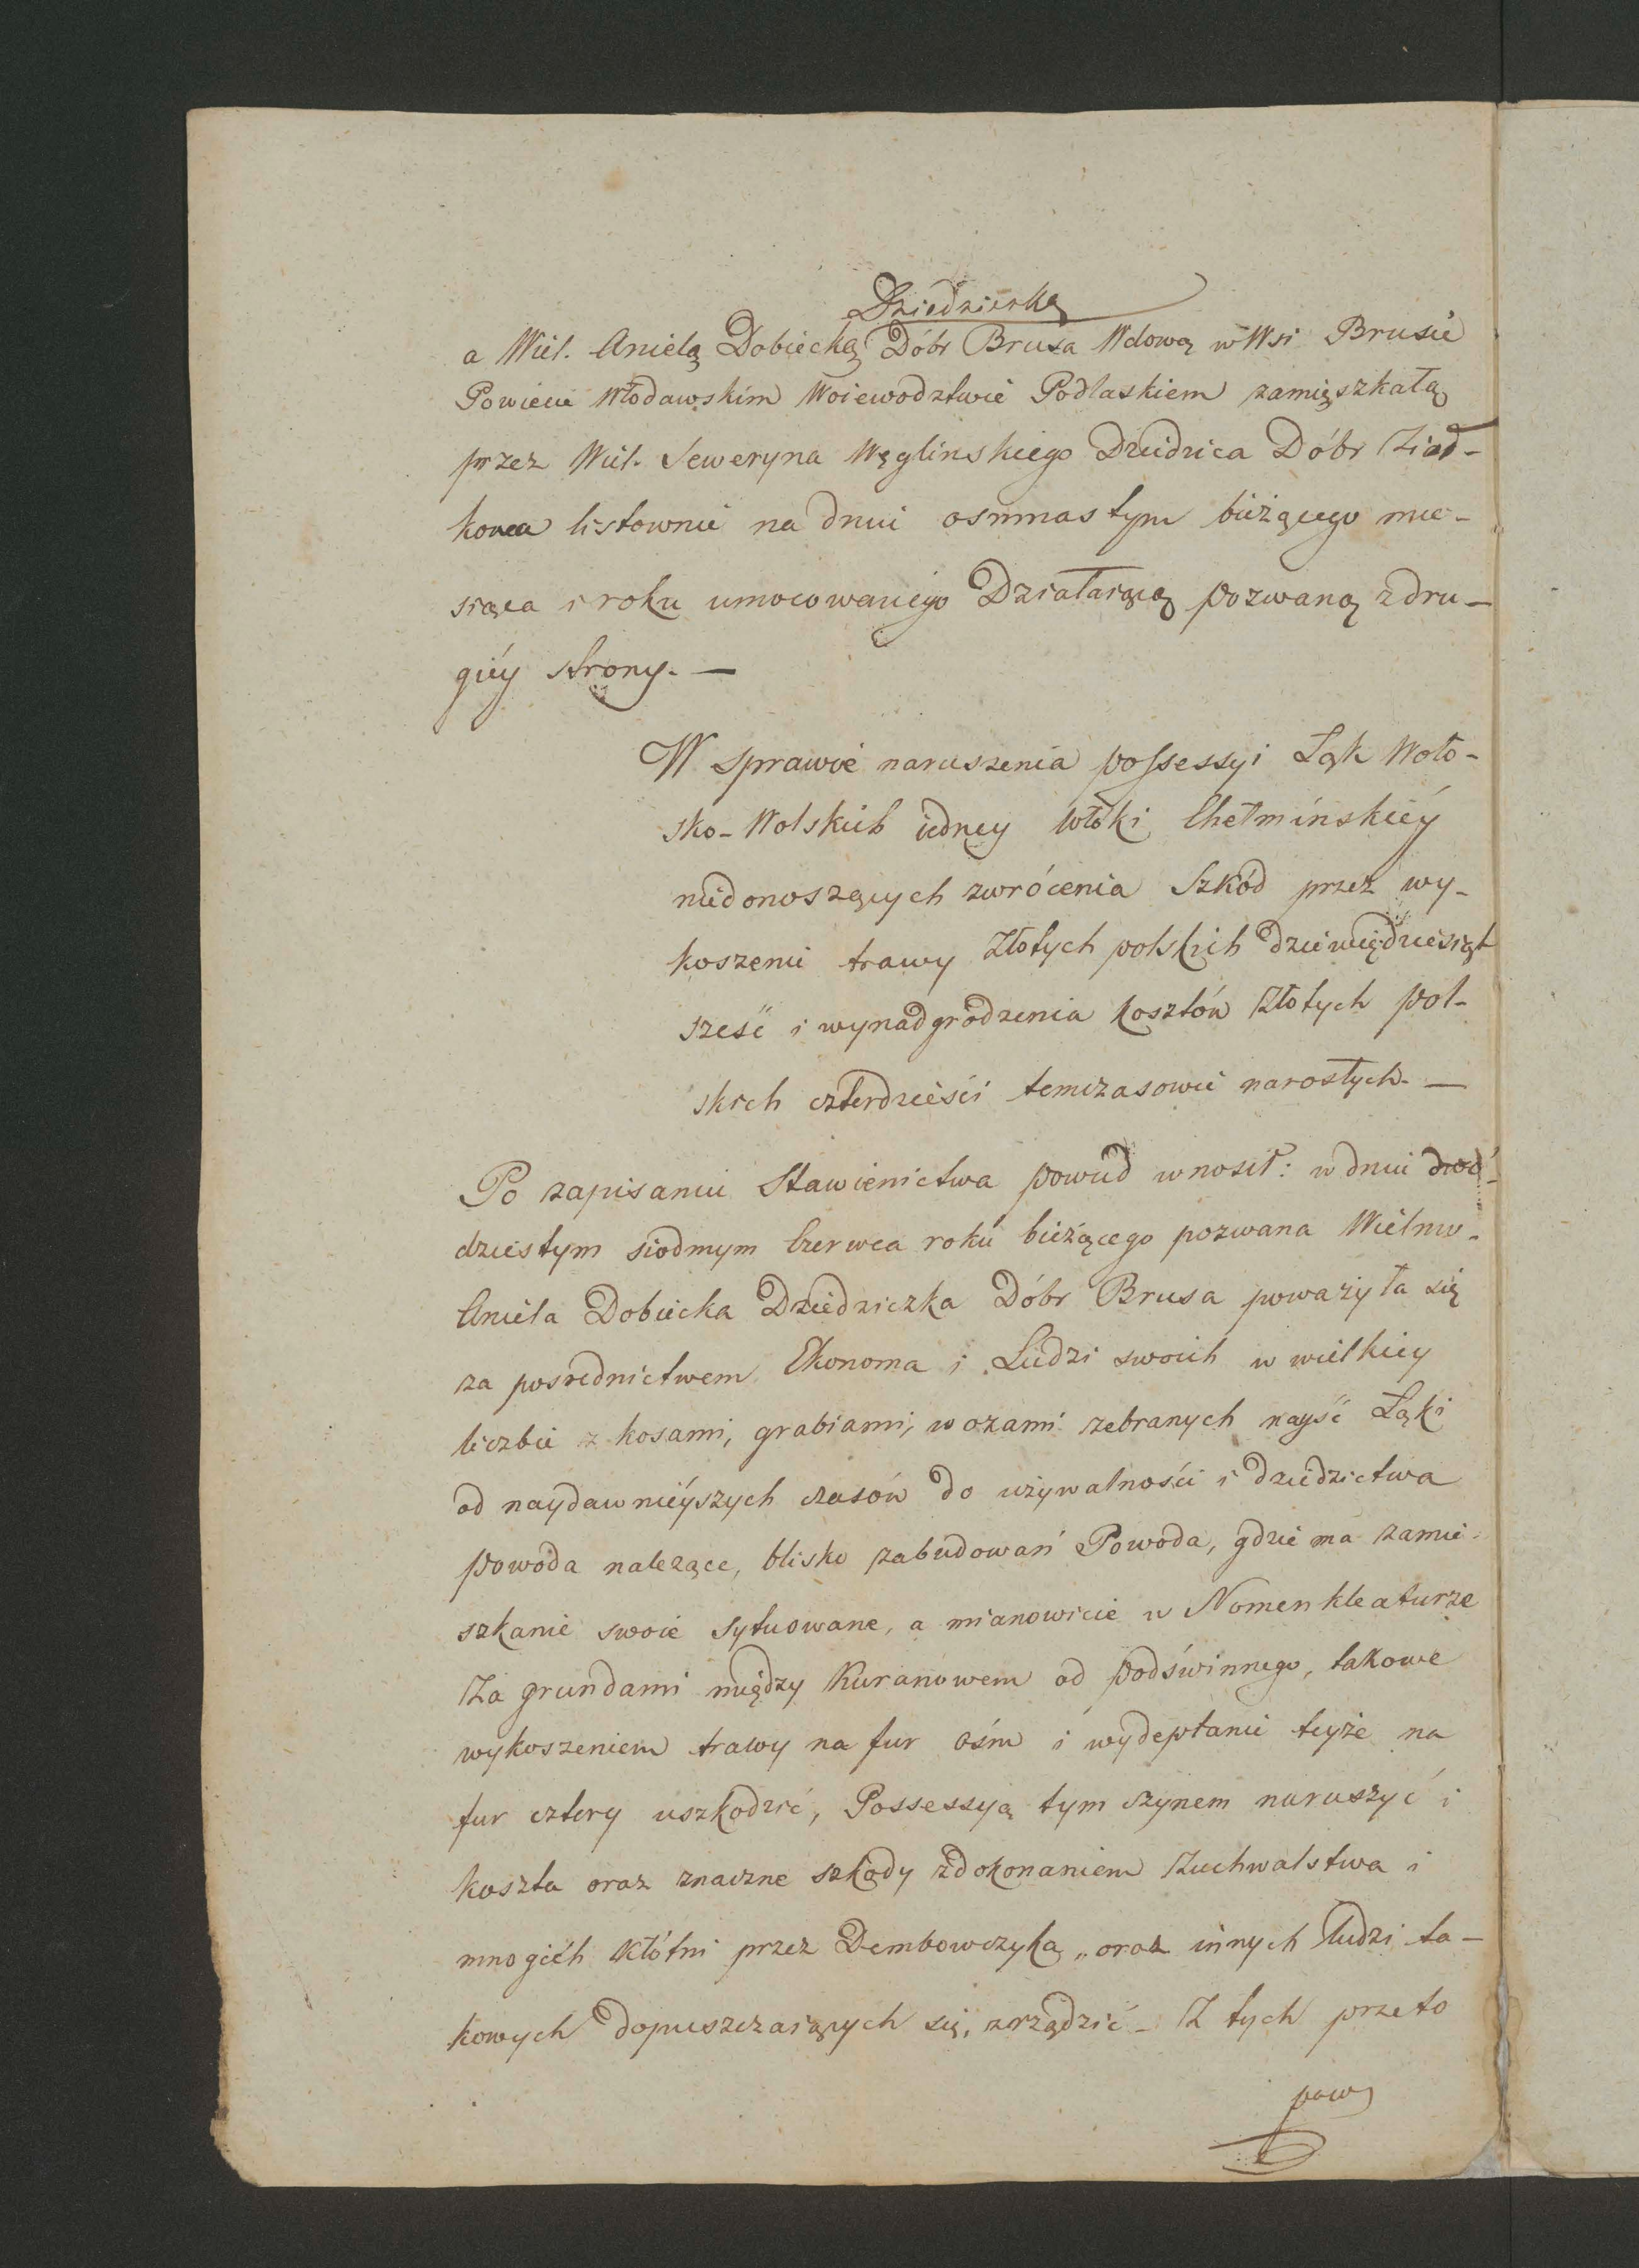 Dziedziczką
a Wiel. Anielą Dobiecką Dóbr Brusa Wdową w Wsi Brusie
Powiecie Włodawskim Woiewodztwie Podlaskiem zamięszkałą
przez Wiel. Seweryna Węglinskiego Dziedzica Dóbr
listownie na dniu osmnastym bieżącego mie-
siąca i roku umocowanego Działaiącą pozwaną z dru-
giéy strony. —
W sprawie naruszenia possessyi Łąk Woło-
sko-Wolskich iedney włóki Chełmińskiéy
niedonoszących zwrócenia Szkód przez wy-
koszenie trawy Złotych polskich dziewięćdziesiąt
sześć i wynadgrodzenia kosztów Złotych pol-
skich czterdzieści temczasowie narosłych. —
Po zapisaniu Stawienictwa powud wnosił: w dniu dwó-
dziestym siodmym Czerwca roku bieżącego pozwana Wielmo.
Aniela Dobiecka Dziedziczka Dóbr Brusa poważyła się
za posrednictwem Ekonoma i Ludzi swoich w wielkiey
liczbie z kosami, grabiami, wozami zebranych nayść Łąki
od naydawniéyszych czasów do używalności i dziedzictwa
powoda nalezące, blisko zabudowań Powoda, gdzie ma zamie-
szkanie swoie sytuowane, a mianowicie w Nomenkleaturze
Za grundami między Kuranowem od podświnnego, takowe
wykoszeniem trawy na fur ośm i wydeptanie teyże na
fur cztery uszkodzić, Possessyą tym czynem naruszyć i
koszta oraz znaczne szkody z dokonaniem Zuchwalstwa i
mnogich kłótni przez Dembowczyka, oraz innych ludzi ta-
kowych dopuszczaiących się, zrządzić — Z tych przeto
pow